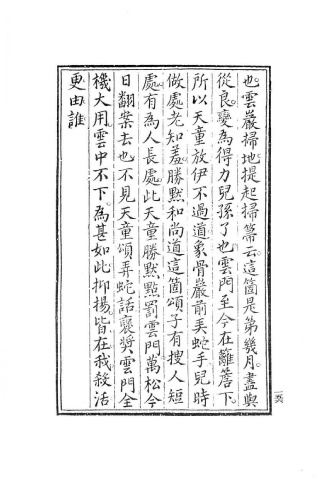 也雲巖掃地提起掃箒云這箇是第幾月盡與
從良變為得力兒孫了也雲門至今在籬簷下
所以天童放伊不過道象骨巖前弄蛇手兒時
做處老知羞勝默和尚道這箇頌子有搜人短
處有為人長處此天童勝默點罰雲門萬松今
日翻案去也不見天童頌弄蛇話褒奬雲門全
機大用雲中不下為甚如此抑揚皆在我殺活
更由誰